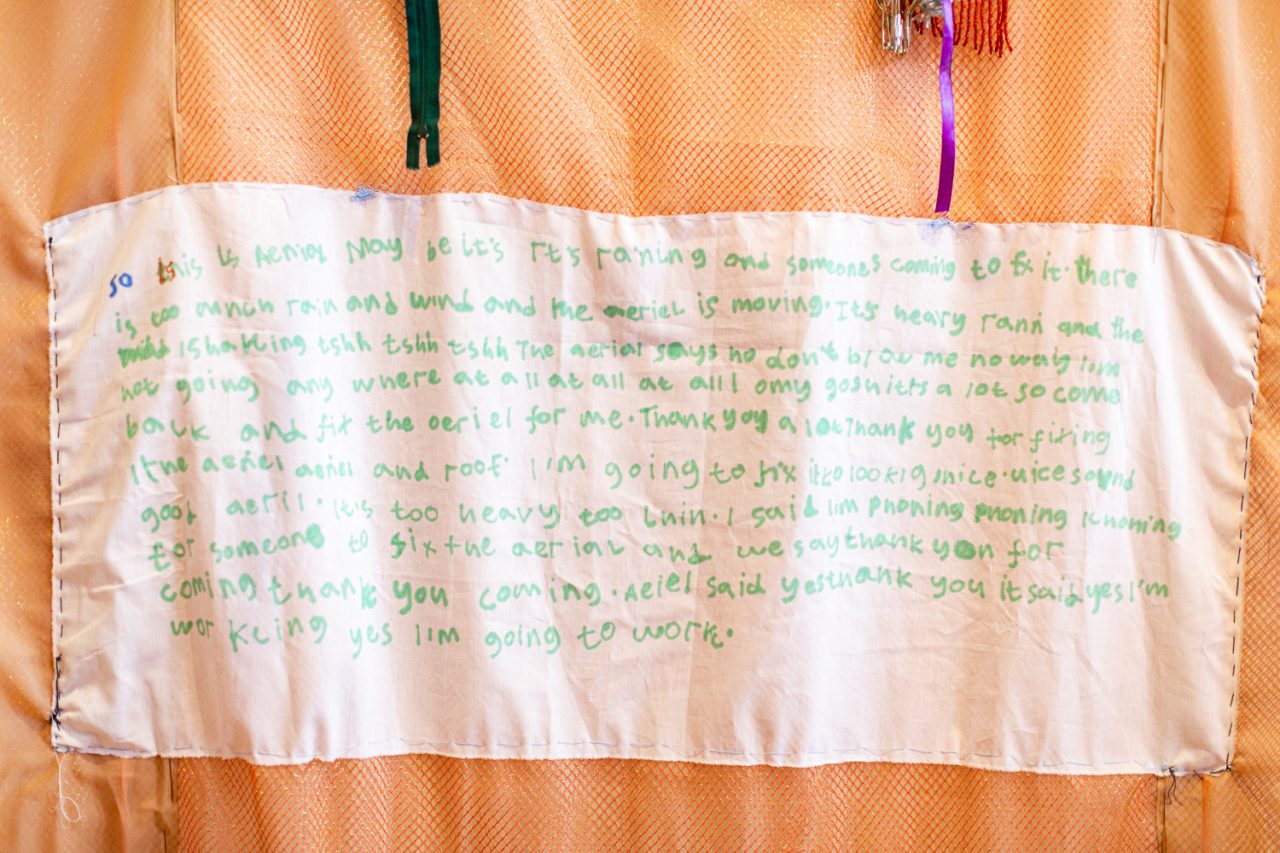 so this is Aeriol May be it's It's raining and someones coming to fix it. there
is too much rain and wind and the aeriel is moving. It's heavy rann and the
is haking tshh tshh tshh The aerial says no don't blow me no way I im
not going any where at all at all at all l omy gosh it's a lot so come
back and fix the aeriel for me. Thank you a lot Thank you for fixing
the aeriel aeriel and roof. I I'm going to fix it to nice. nice sound
good aeril. It's too heavy too thin. I said I im phoning phoning
for someone to fix the aerial and we say thank you for
coming thank you coming. Aeiel said yes thank you it said yes I'm
wor kcing yes I I'm going to work.